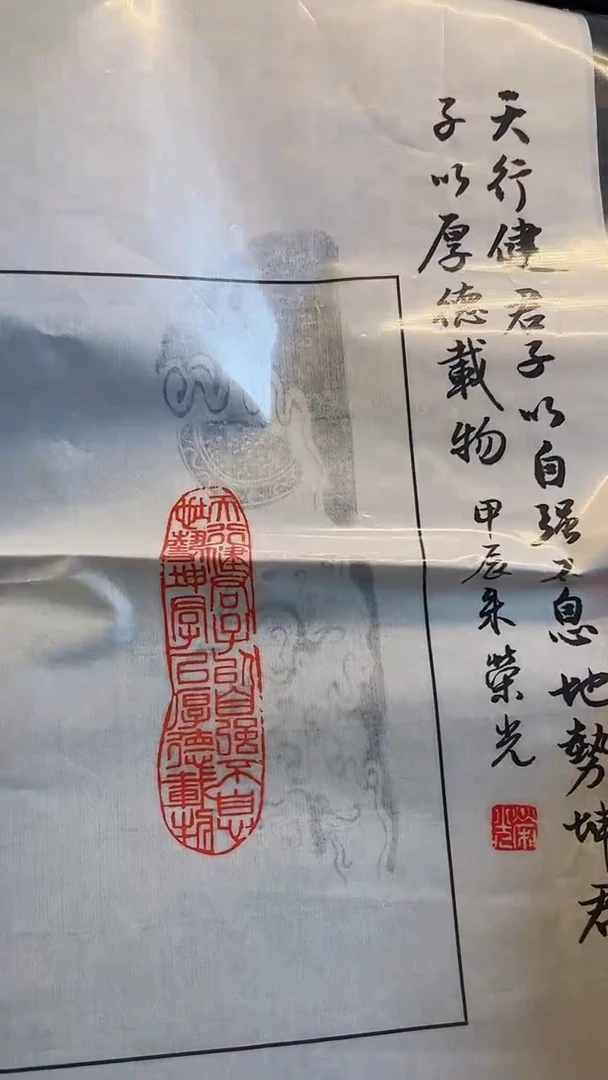 天行健君子以自强不息地勢坤君
子以厚德載物
甲辰朱榮光
天行健君子以自强不息
地勢坤君子以厚德載物
榮光